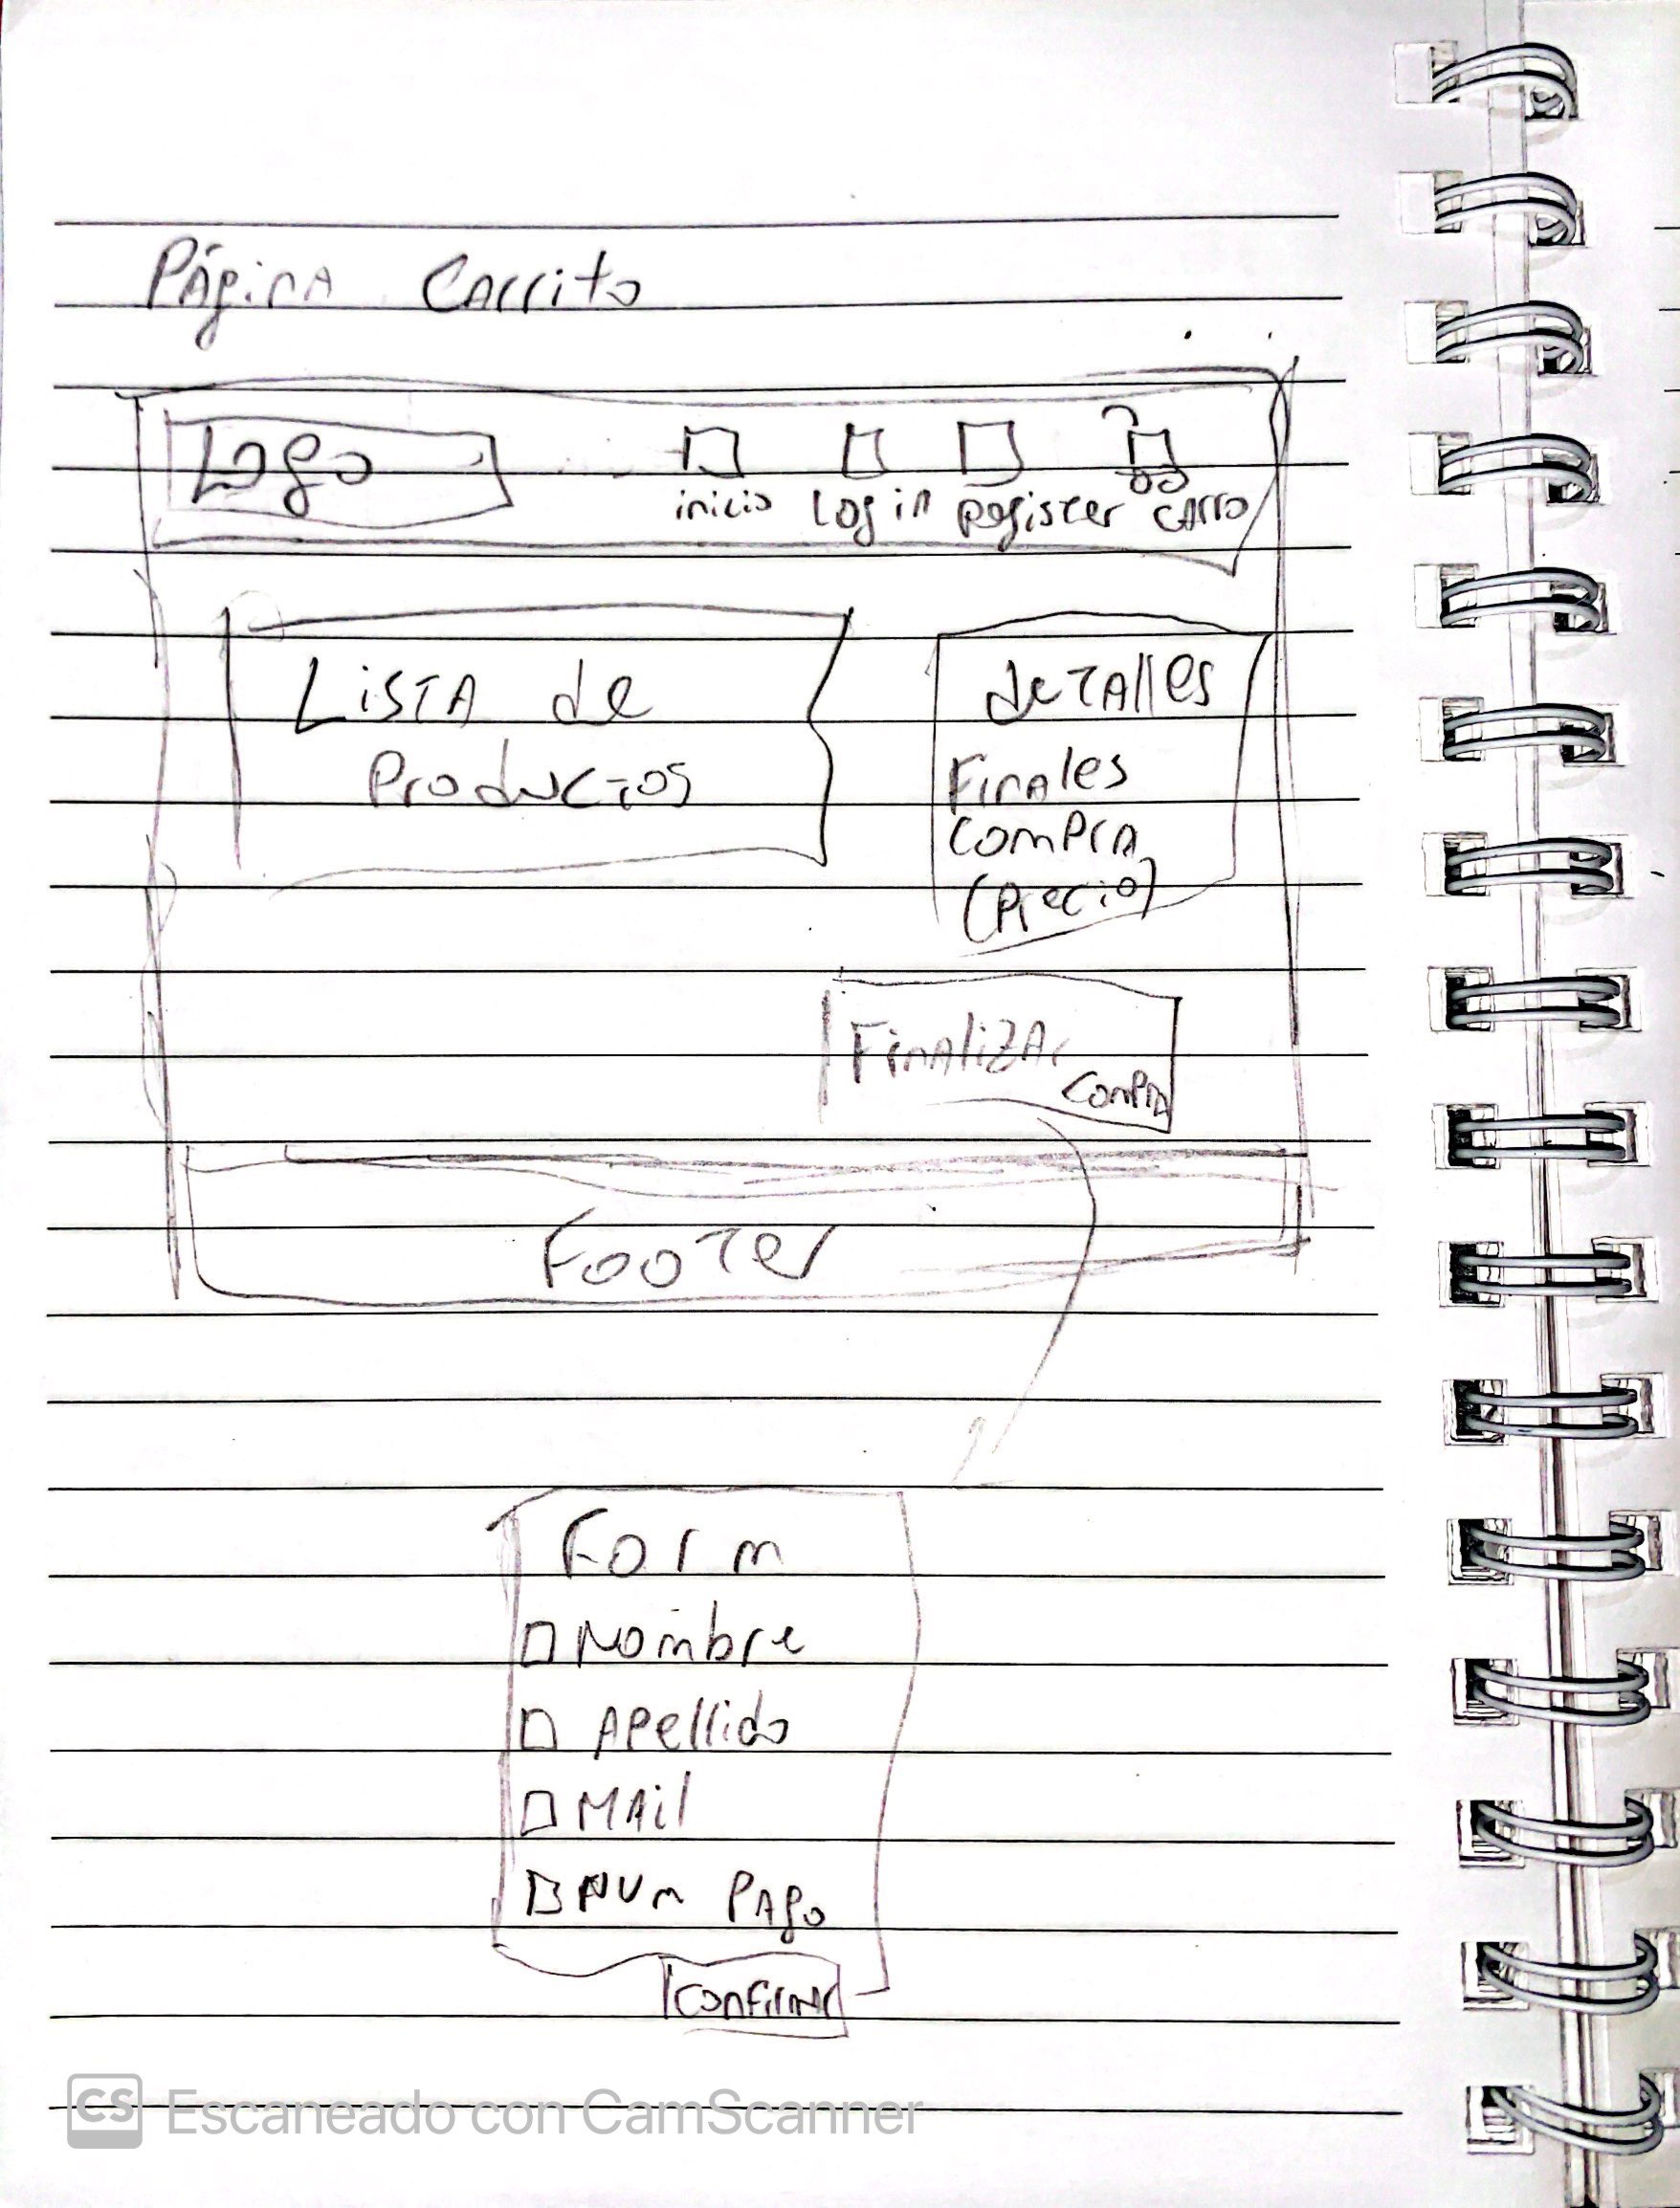 Página Carrito
Logo
inicio Login Register carro
Lista de
Productos
detalles
Finales
Compra
(Precio)
Finalizar
Compra
Footer
Form
Nombre
Apellido
Mail
Num Pago
Confirmar
CS Escaneado con CamScanner